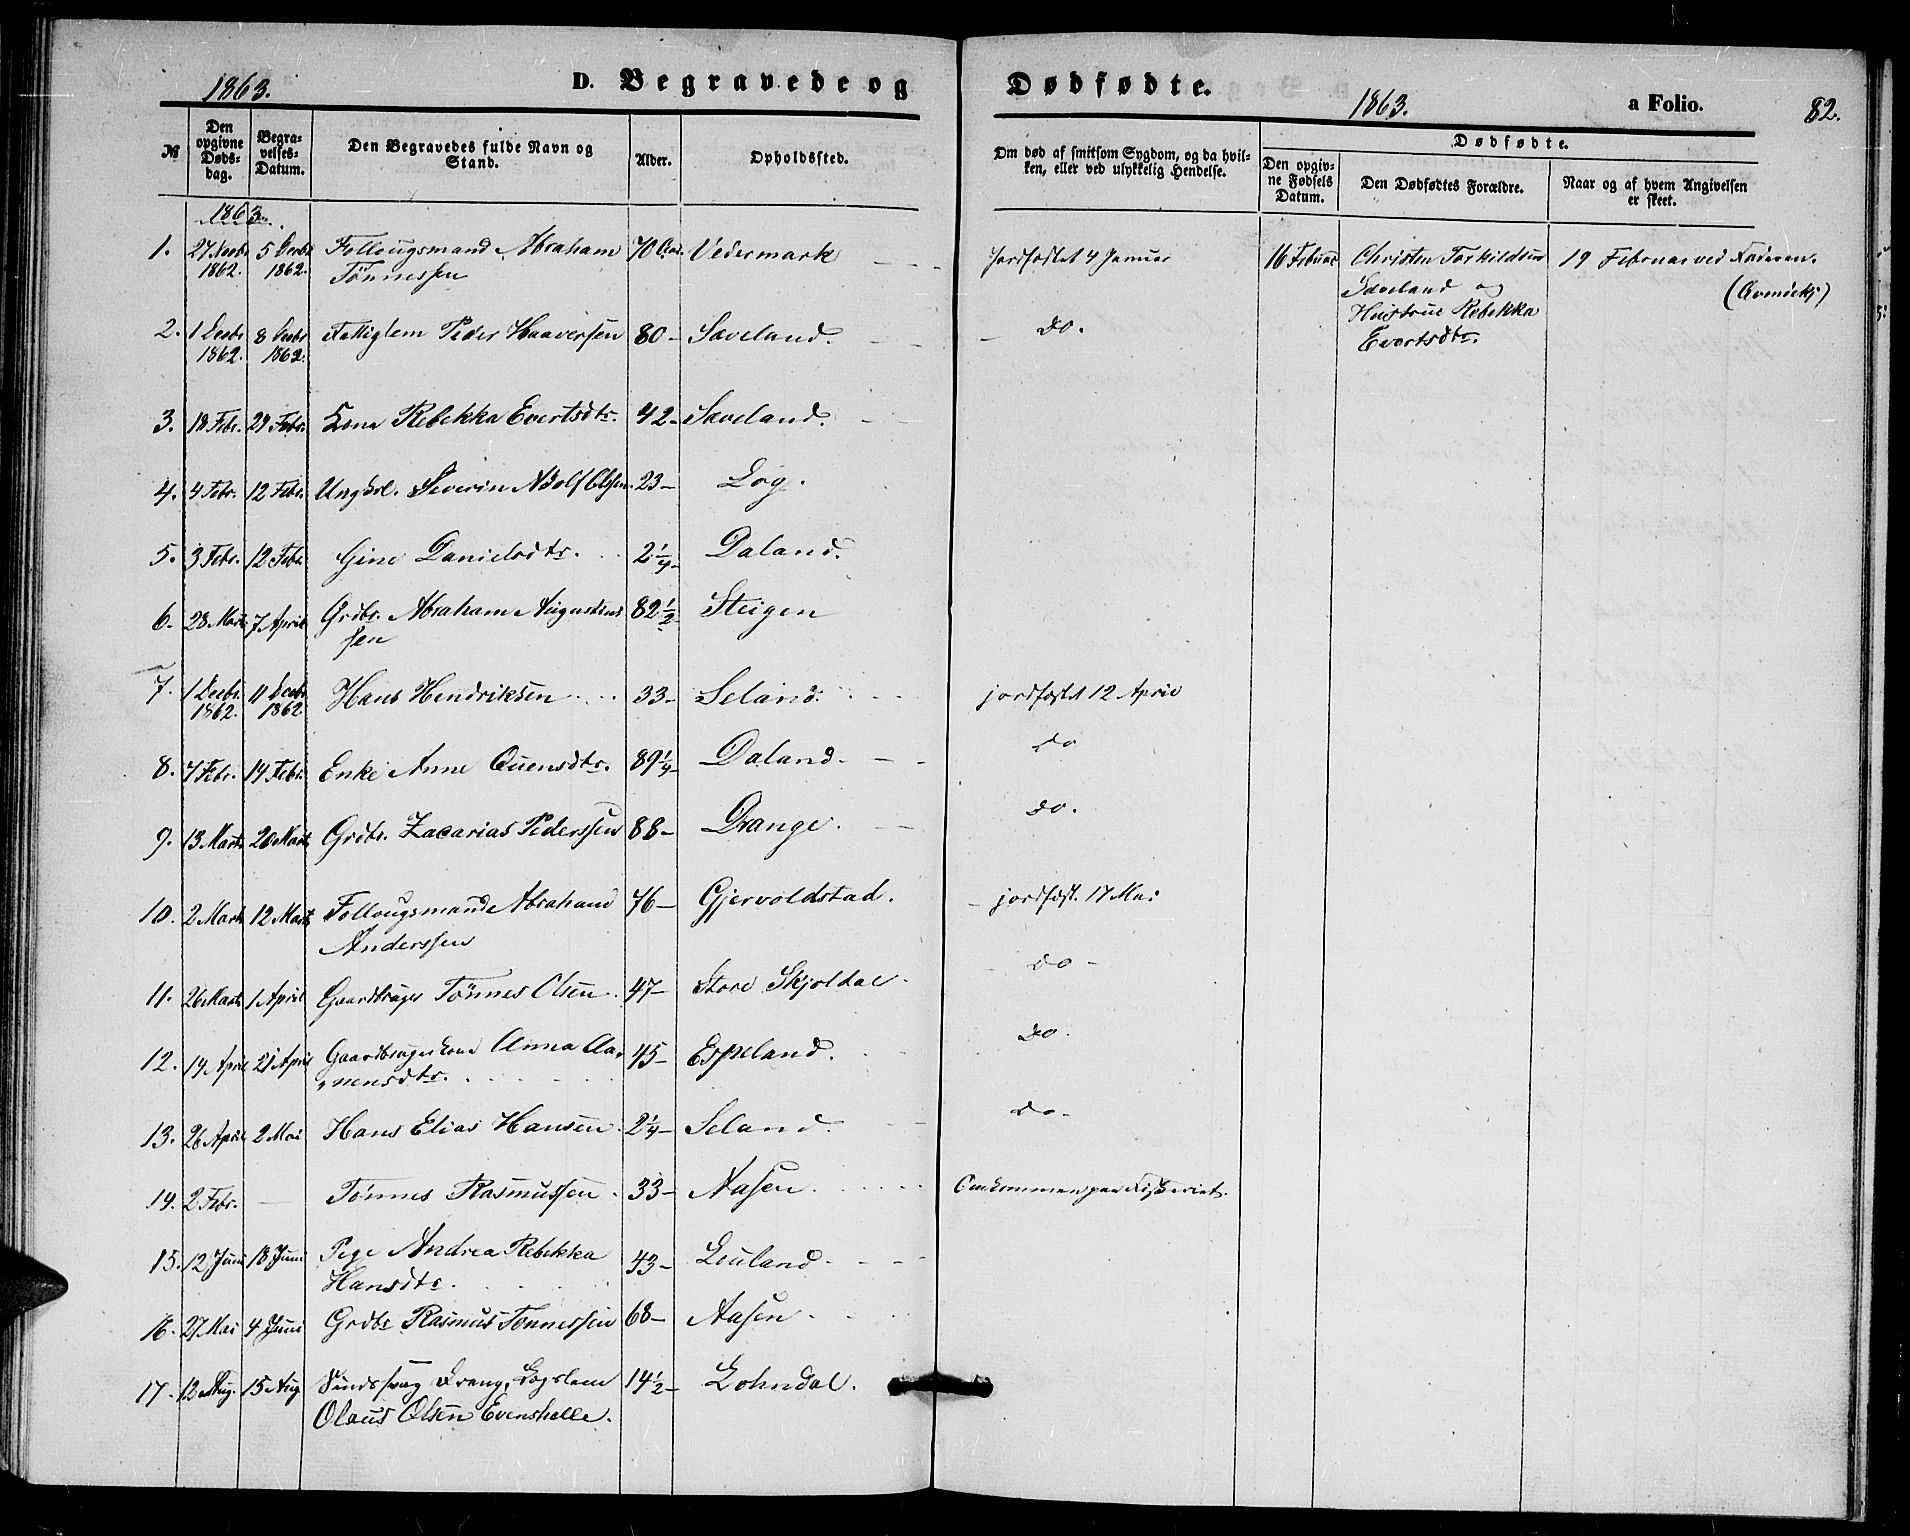 1863. D. Begravede og Dødfødte. 1863. a Folio. 82.
№ Den opgivne Døds-dag. Begra-velses-Datum. Den Begravedes fulde Navn og Stand. Alder. Opholdssted. Om død af smitsom Sygdom, og da hvil-ken, eller ved ulykkelig Hendelse. Dødfødte. Den opgiv-ne Fødsels Datum. Den Dødfødtes Forældre. Naar og af hvem Angivelsen er skeet.
1863.
1. 27 Novbr 1862. 5 Decbr 1862. Follougsmand Abraham Tönnessen 70 Vedermark Jordfæstet 4 Januar 16 Februar Christen Torkildsen Saveland og Hustrue Rebekka Evertsdtr. 19 Februar ved Faderen.
2. 1 Decbr 1862. 8 Decbr 1862. Fattiglem Peder Haaversen 80 - Saveland. do.
3. 18 Febr. 24 Febr. Kone Rebekka Evertsdtr. 42 - Saveland.
4. 4 Febr. 12 Febr. Ungkrl. Severin Adolf Olsen. 23 - Log.
5. 3 Febr. 12 Febr. Gine Danielsdtr. 2 1/4 - Daland.
6. 28 Mart 7 April Grdbr. Abraham Augustins sen 82 1/2 - Steigen
7. 1 Decbr. 1862. 11 Decbr 1862 Hans Hendriksen 33 - Seland. jordfæstet 12 April
8. 7 Febr. 14 Febr. Enke Anne Ouensdtr. 89 1/4 - Daland. do
9. 13 Marts 20 Marts Grdbr. Zacarias Pederssen 88 - Drange. do.
10. 2 Marts 12 Marts Follougsmand Abraham Anderssen 76 - Gjervoldstad. jordfæst. 17 Mai
11. 26 Marts 1 April Gaardbruger Tönnes Olsen. 47 - Store Skjoldal. do -
12. 14 April 21 April Gaardbrugerkone Anna Aa, nensdtr. 45 - Espeland. do.
13. 26 April 2 Mai Hans Elias Hansen. 2 1/4 - Seland. do -
14. 2 Febr. — Tönnes Rasmussen. 33 - Aasen. Omkommen paa Fiskeriet.
15. 12 Juni 18 Juni Pige Andrea Rebekka Hansdtr. 43 - Leuland.
16. 27 Mai 4 Juni Grdbr Rasmus Tönnessen 68 - Aasen.
17. 12 Aug. 15 Aug. Dreng, Olaus Olsen Evenshelle. 14 1/2 - Lohndal.